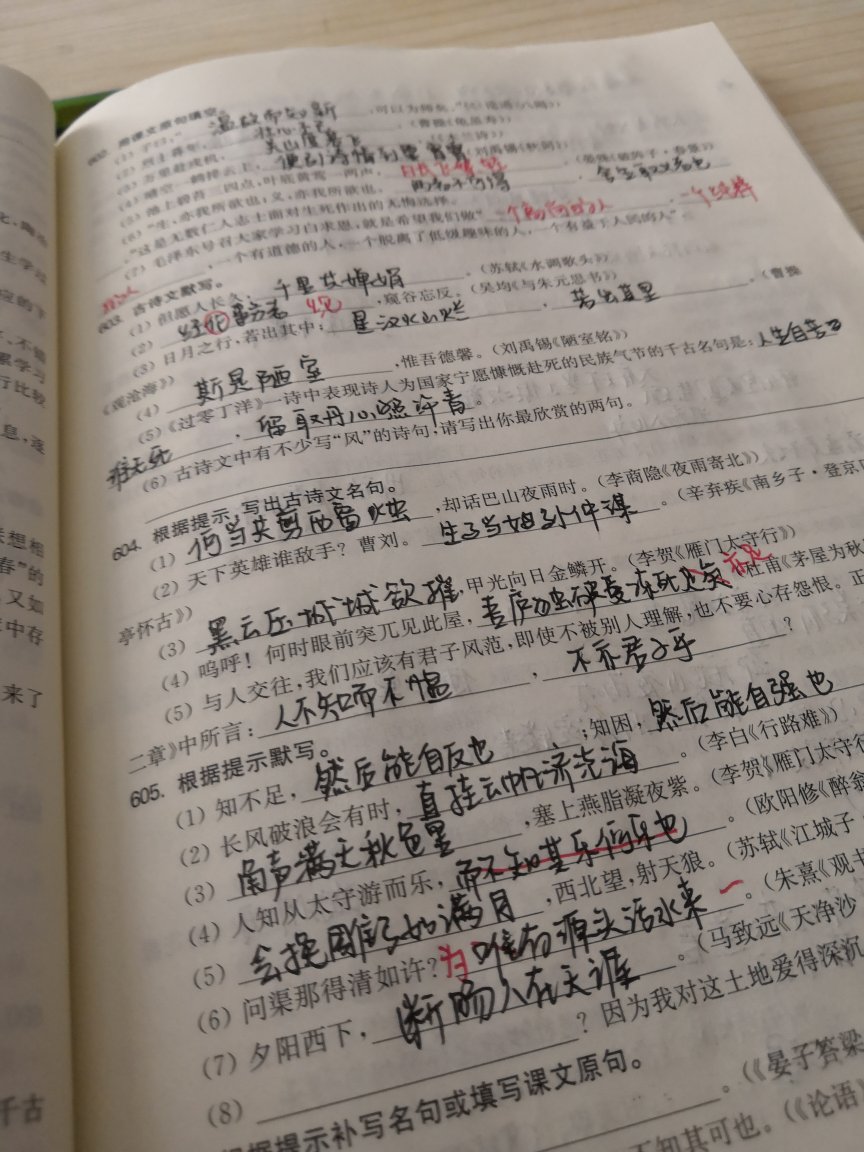 602. 用课文原句填空。
(1) 子曰:“温故而知新,可以为师矣。”
(2) 烈士暮年,壮心不已。(曹操《龟虽寿》)
(3) 万里赴戎机,关山度若飞。
(4) 晴空一鹤排云上,便引诗情到碧霄。(刘禹锡《秋词》)
(5) 池上碧苔三四点,叶底黄鹂一两声,日长飞絮轻。
(6) “生,亦我所欲也;义,亦我所欲也,
”这是无数仁人志士面对生死作出的无悔选择。
(7) 毛泽东号召大家学习白求恩,就是希望我们做“一个高尚的人,一个纯粹
的人,一个有道德的人,一个脱离了低级趣味的人,一个有益于人民的人”
603. 古诗文默写。
(1) 但愿人长久,千里共婵娟。(苏轼《水调歌头》)
(2) ,窥谷忘反。(吴均《与朱元思书》)
(3) 日月之行,若出其中;星汉灿烂,若出其里。(曹操
《观沧海》)
(4) 斯是陋室,惟吾德馨。(刘禹锡《陋室铭》)
(5)《过零丁洋》一诗中表现诗人为国家宁愿慷慨赴死的民族气节的千古名句是:人生自古
谁无死,留取丹心照汗青。
(6) 古诗文中有不少写“风”的诗句,请写出你最欣赏的两句。
604. 根据提示,写出古诗文名句。
(1) 何当共剪西窗烛,却话巴山夜雨时。(李商隐《夜雨寄北》)
(2) 天下英雄谁敌手?曹刘。生子当如孙仲谋。(辛弃疾《南乡子·登京
亭怀古》)
(3) 黑云压城城欲摧,甲光向日金鳞开。(李贺《雁门太守行》)
(4) 呜呼!何时眼前突兀见此屋,吾庐独破受冻死亦足(杜甫《茅屋为秋
(5) 与人交往,我们应该有君子风范,即使不被别人理解,也不要心存怨恨。正
二章》中所言:人不知而不愠,不亦君子乎?
605. 根据提示默写。
(1) 知不足,然后能自反也;知困,然后能自强也
(2) 长风破浪会有时,直挂云帆济沧海。(李白《行路难》)
(3) 角声满天秋色里,塞上燕脂凝夜紫。(李贺《雁门太守行
(4) 人知从太守游而乐,而不知其乐。(欧阳修《醉翁
(5) 会挽雕弓如满月,西北望,射天狼。(苏轼《江城子·
(6) 问渠那得清如许?为唯有源头活水来。(朱熹《观书
(7) 夕阳西下,断肠人在天涯。(马致远《天净沙
(8) ?因为我对这土地爱得深沉
根据提示补写名句或填写课文原句。
。(《晏子答梁
不知其可也。(《论语》